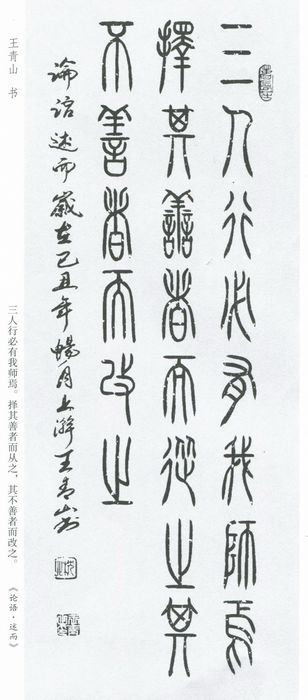 三人行必有我师焉
择其善者而从之其
不善者而改之
论语述而岁在己丑年畅月上澣王青山书
王青山 书
三人行必有我师焉。择其善者而从之，其不善者而改之。 《论语·述而》